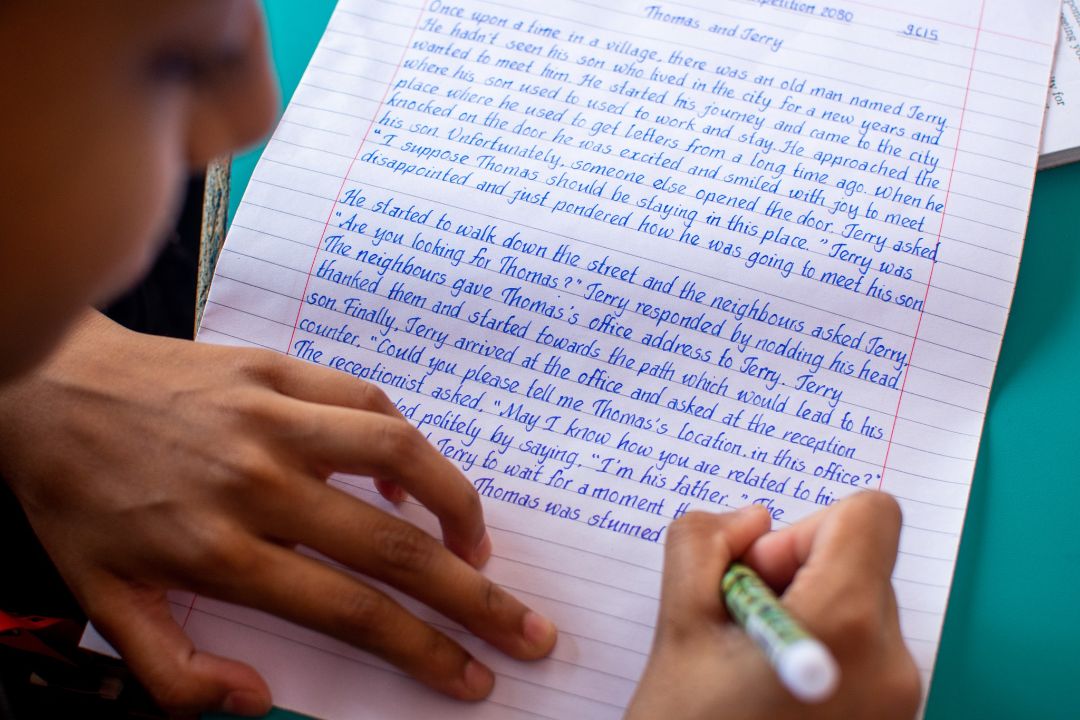 2080
9C15
Thomas and Jerry
Once upon a time in a village, there was an old man named Jerry.
He hadn't seen his son who lived in the city for a new years and
wanted to meet him. He started his journey and came to the city
where his son used to used to work and stay. He approached the
place where he used to get letters from a long time ago. When he
knocked on the door he was excited and smiled with joy to meet
his son. Unfortunately, someone else opened the door. Jerry asked,
"I suppose Thomas should be staying in this place." Jerry was
disappointed and just pondered how he was going to meet his son.
He started to walk down the street and the neighbours asked Jerry,
"Are you looking for Thomas?" Jerry responded by nodding his head.
The neighbours gave Thomas's office address to Jerry. Jerry
thanked them and started towards the path which would lead to his
son. Finally, Jerry arrived at the office and asked at the reception
counter, "Could you please tell me Thomas's location in this office?"
The receptionist asked, "May I know how you are related to
politely by saying, "I'm his father." The
Jerry to wait for a moment
Thomas was stunned